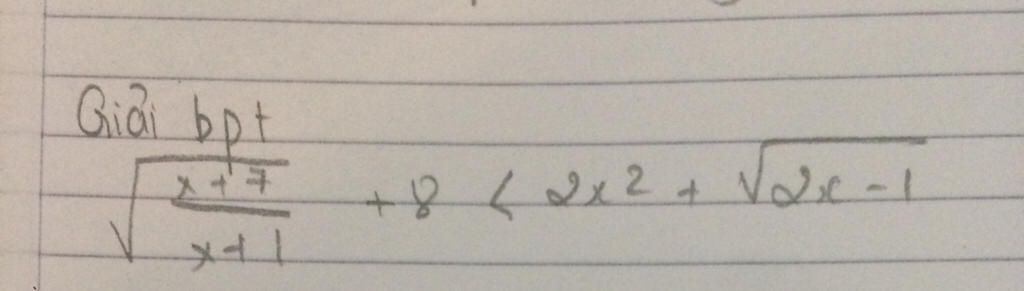 Giải bpt
√((x+7)/(x+1)) + 8 < 2x² + √(2x-1)